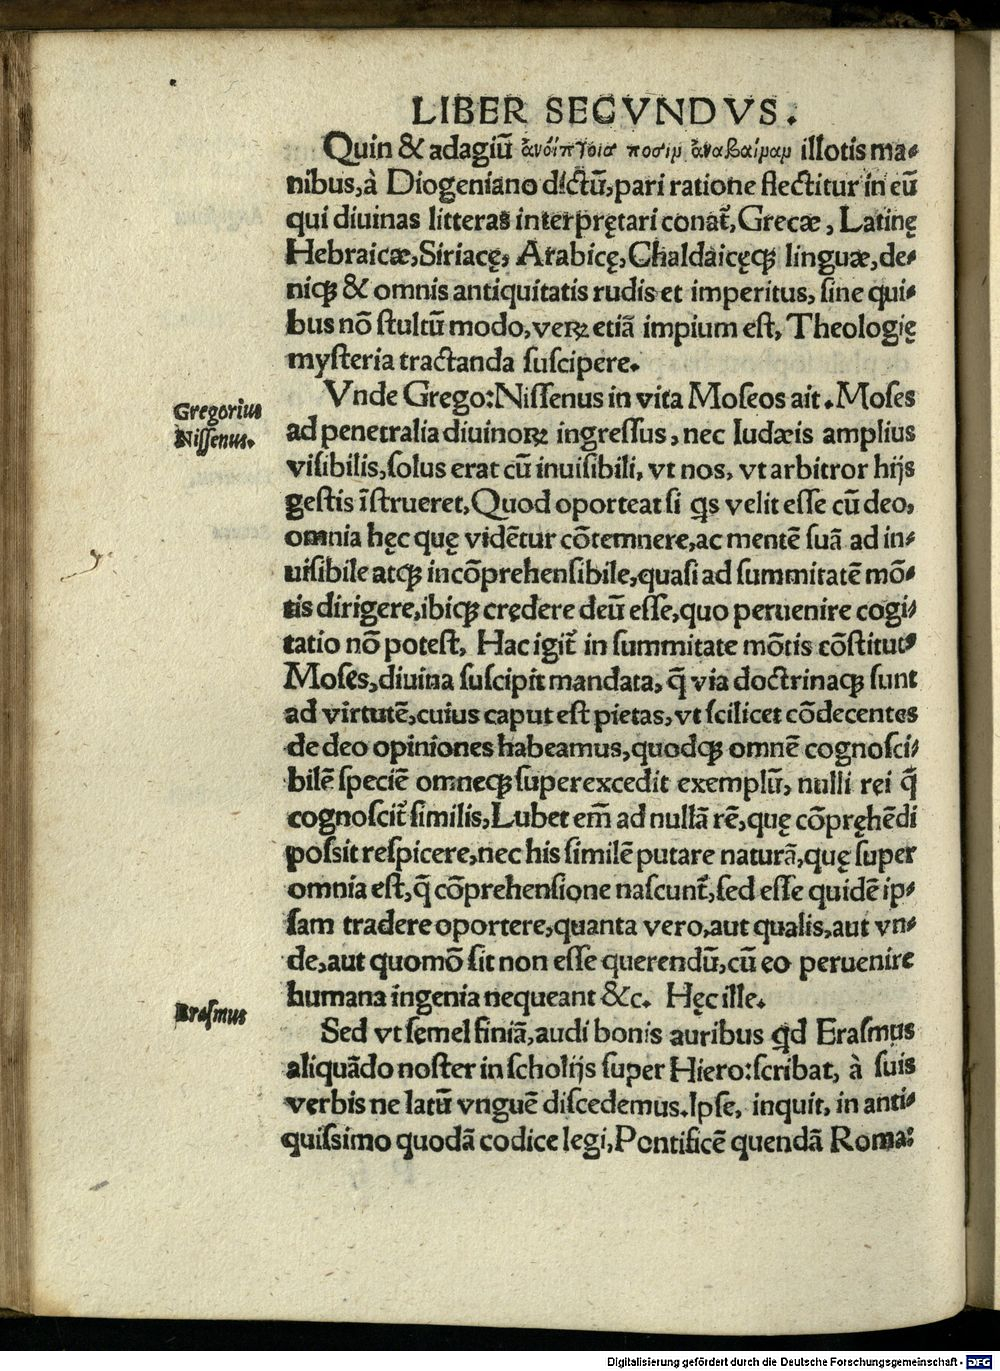 LIBER SECVNDVS.
Quin & adagiũ ἀνίπτοις ποσὶμ ἀναβαίμαμ illotis ma⸗
nibus, à Diogeniano dictũ, pari ratione flectitur in eũ
qui diuinas litteras interprętari conat᷑, Grecæ, Latinę
Hebraicæ, Siriacę, Arabicę, Chaldaicęꝗ linguæ, de⸗
niꝗ & omnis antiquitatis rudis et imperitus, sine qui⸗
bus nõ stultũ modo, veꝝ etiã impium est, Theologię
mysteria tractanda suscipere.
Vnde Grego: Nissenus in vita Moseos ait. Moses
Gregorius
Nissenus.
ad penetralia diuinoꝝ ingressus, nec Iudæis amplius
visibilis, solus erat cũ inuisibili, vt nos, vt arbitror hijs
gestis ĩstrueret, Quod oporteat si ꝗs velit esse cũ deo,
omnia hęc quę vidẽtur cõtemnere, ac mentẽ suã ad in⸗
uisibile atꝗ incõprehensibile, quasi ad summitatẽ mõ⸗
tis dirigere, ibiꝗ credere deũ esse, quo peruenire cogi⸗
tatio nõ potest, Hac igit᷑ in summitate mõtis cõstitutꝰ
Moses, diuina suscipit mandata, q̃ via doctrinaꝗ sunt
ad virtutẽ, cuius caput est pietas, vt scilicet cõdecentes
de deo opiniones habeamus, quodꝗ omnẽ cognosci⸗
bilẽ speciẽ omneꝗ superexcedit exemplũ, nulli rei q̃
cognoscit᷑ similis, Lubet em̃ ad nullã rẽ, quę cõpręhẽdi
possit respicere, nec his similẽ putare naturã, quę super
omnia est, q̃ cõprehensione nascunt᷑, sed esse quidẽ ip⸗
sam tradere oportere, quanta vero, aut qualis, aut vn⸗
de, aut quomõ sit non esse querendũ, cũ eo peruenire
humana ingenia nequeant &c. Hęc ille.
Erasmus
Sed vt semel finiã, audi bonis auribus ꝗd Erasmus
aliquãdo noster in scholijs super Hiero: scribat, à suis
verbis ne latũ vnguẽ discedemus. Ipse, inquit, in anti⸗
quissimo quodã codice legi, Pontificẽ quendã Roma⸗
Digitalisierung gefördert durch die Deutsche Forschungsgemeinschaft - DFG